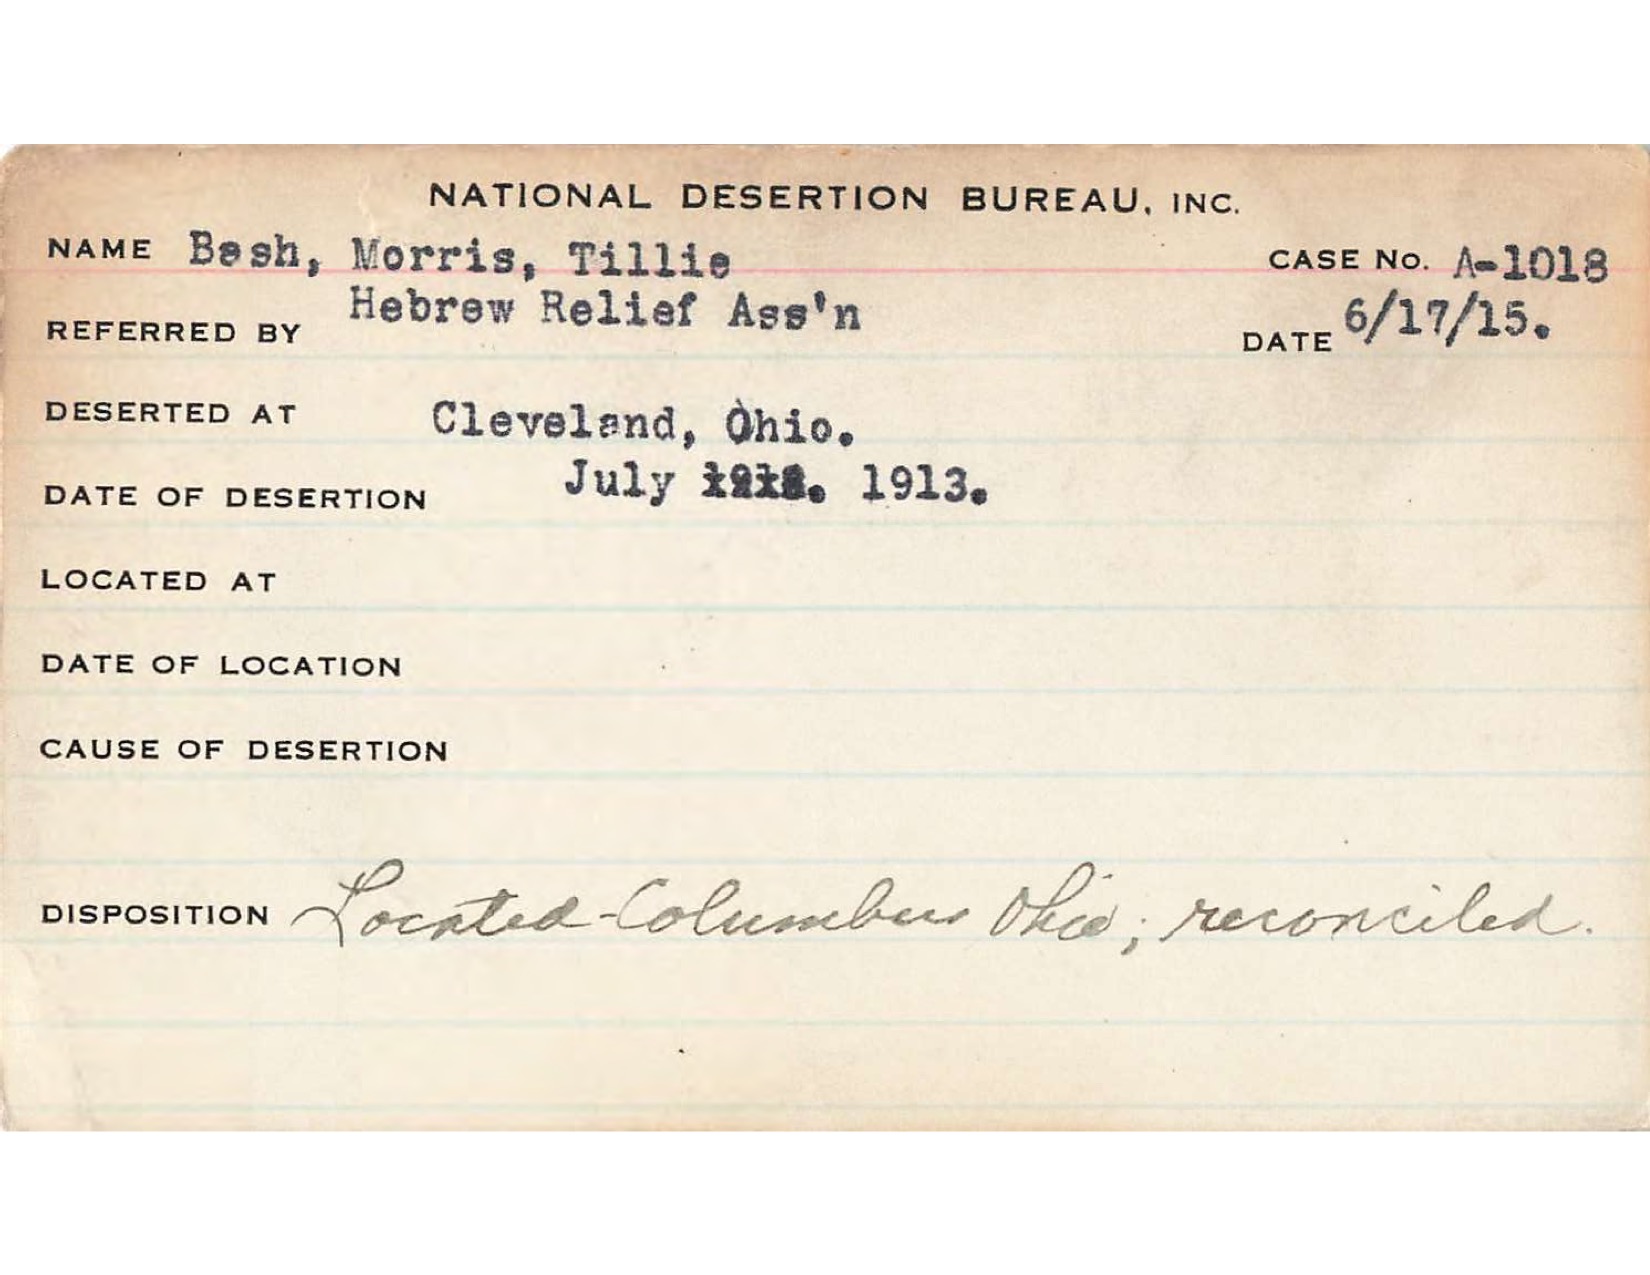 NATIONAL DESERTION BUREAU, INC.
NAME Bash, Morris, Tillie CASE No. A-1018
REFERRED BY Hebrew Relief Ass'n DATE 6/17/15.
DESERTED AT Cleveland, Ohio.
DATE OF DESERTION July 1913.
LOCATED AT
DATE OF LOCATION
CAUSE OF DESERTION
DISPOSITION Located - Columbus Ohio; reconciled.